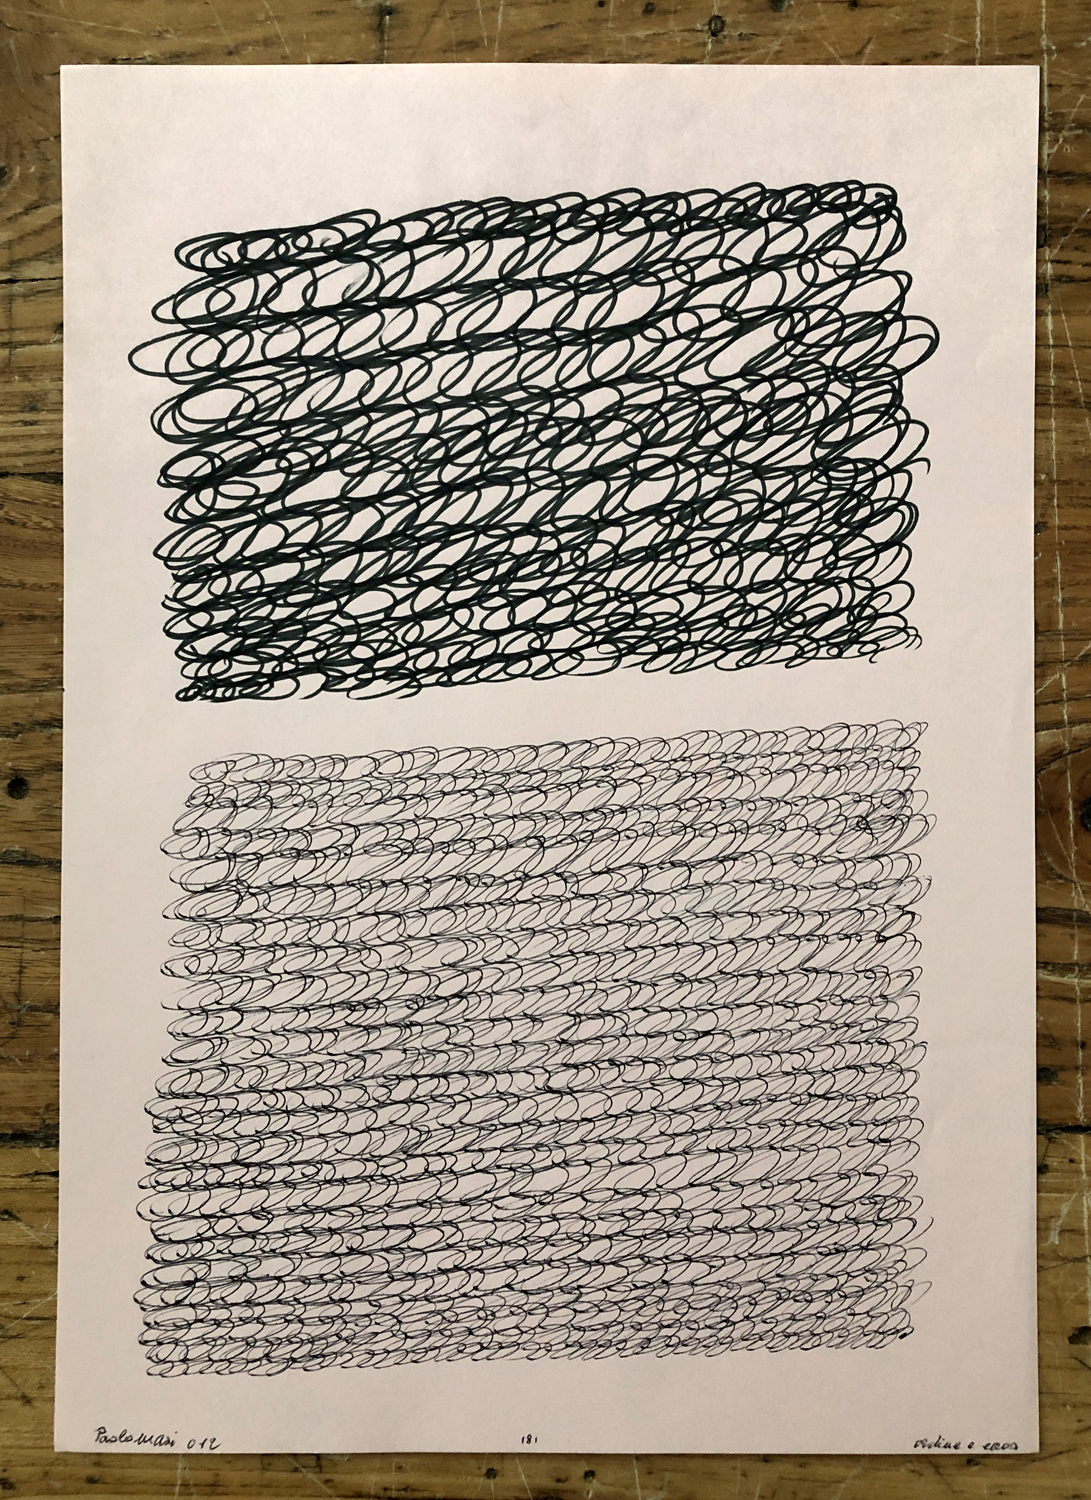 Paolo Masi 012
181
ordine e caos